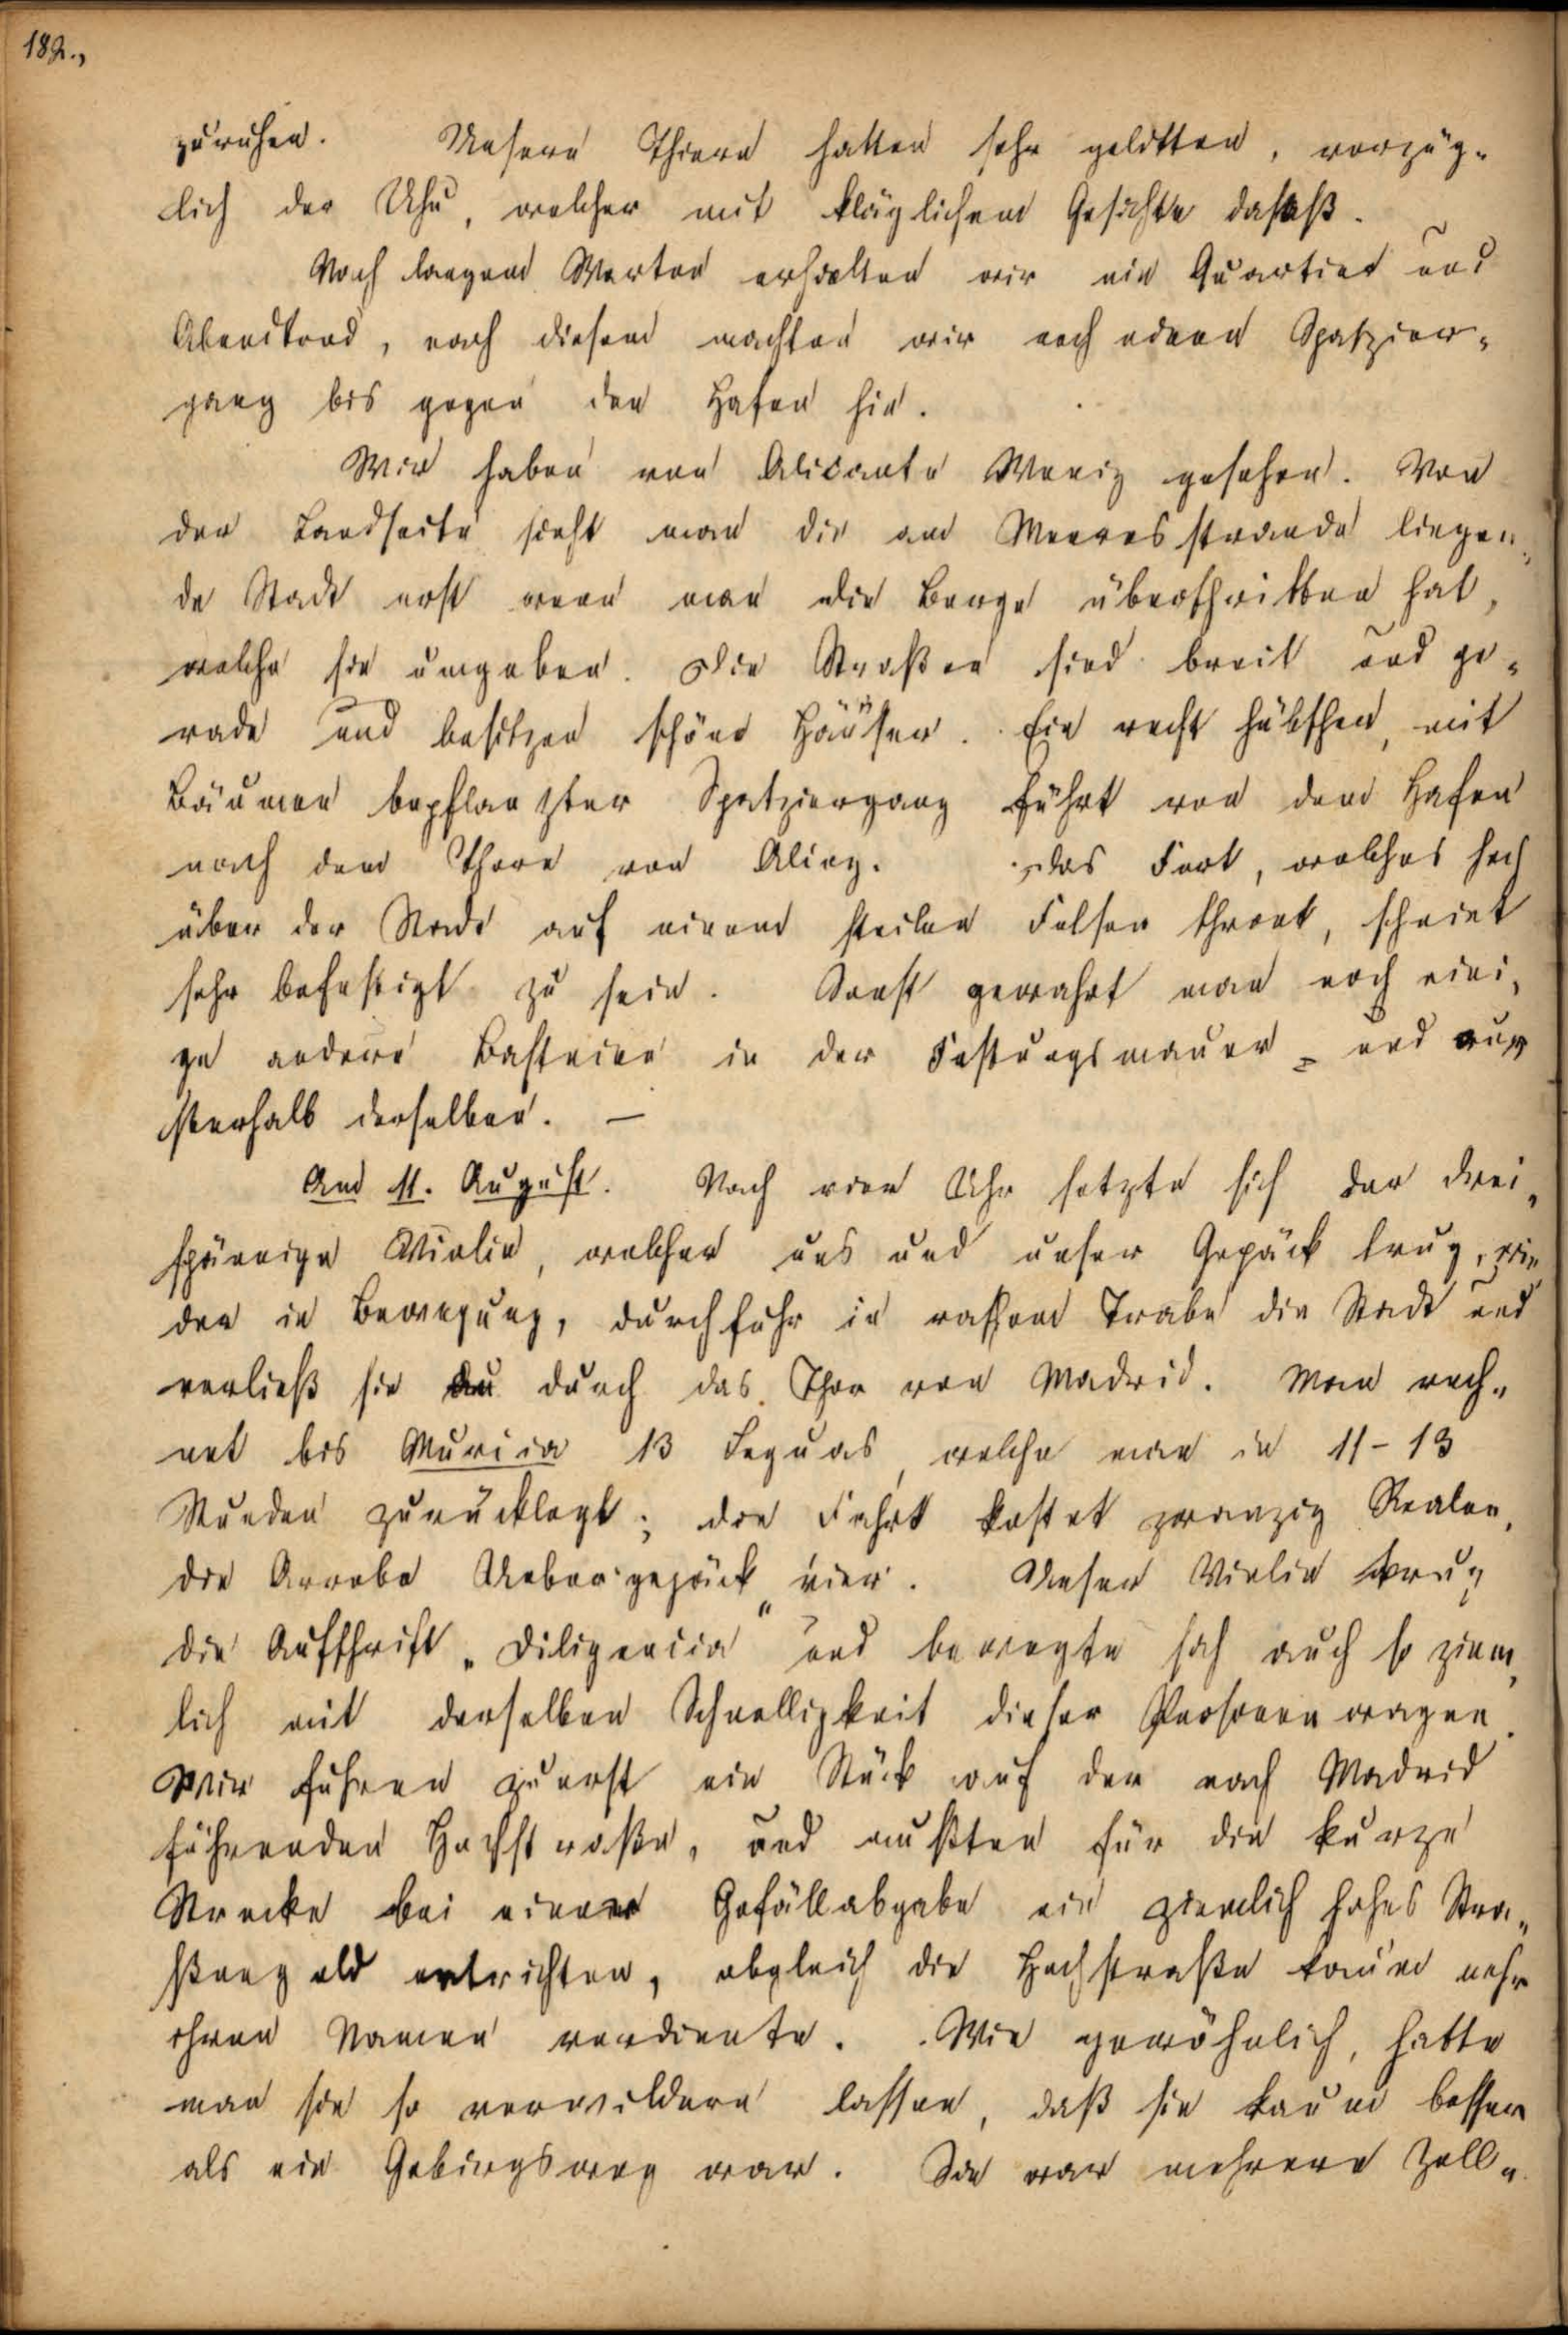 182.,
zuruhen. Unsere Thiere hatten sehr gelitten, vorzüg-
lich der Uhu, welcher mit kläglichem Gesichte dasaß.
Nach langem Warten erhielten wir ein Quartier und
Abendbrod, nach diesem machten wir noch einen Spatzier-
gang bis gegen den Hafen hin.
Wir haben von Alicante Wenig gesehen. Von
der Landseite sieht man die am Meeresstrande liegen-
de Stadt erst wenn man die Berge überschritten hat,
welche sie umgeben. Die Straßen sind breit und ge-
rade und besitzen schöne Häuser. Ein recht hübscher, mit
Bäumen bepflanzter Spatziergang führt von dem Hafen
nach dem Thore von . Das Fort, welches hoch
über der Stadt auf einem steilen Felsen thront, scheint
sehr befestigt zu sein. Sonst gewahrt man noch eini-
ge andere Basteien in der Festungsmauer - und au
ßerhalb derselben. —
Am 11. August. Nach vier Uhr setzte sich der drei-
spännige Violin, welcher uns und unser Gepäck trug, wie
der in Bewegung, durchfuhr in raschem Trabe die Stadt und
verließ sie durch das Thor von Madrid. Man rech-
net bis Murcia 13 Leguas, welche man in 11-13
Stunden zurücklegt; die Fahrt kostet zwanzig Realen,
die Arroba Uebergepäck vier. Unser Violin trug
die Aufschrift „Diligencia" und bewegte sich auch so ziem-
lich mit derselben Schnelligkeit dieser Personenwagen.
Wir fuhren zuerst ein Stück auf der nach Madrid
führenden Hochstraße, und mußten für die kurze
Strecke bei einer Gefällabgabe ein ziemlich hohes Stra-
ßengeld entrichten, obgleich die Hochstraße kaum mehr
ihren Namen verdiente. Wie gewöhnlich, hatte
man sie so verwildern lassen, daß sie kaum besser
als ein Gebirgsweg war. Sie war mehrere Zoll-